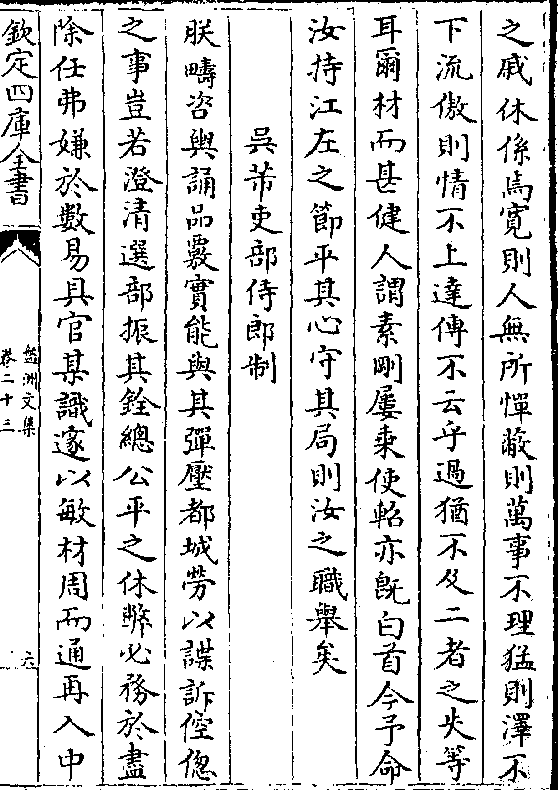 之戚休係焉寛則人無所憚蔽則萬事不理猛則澤不
下流傲則情不上達傳不云乎過猶不及二者之失等
耳爾材而甚健人謂素剛屢乘使軺亦既白首今予命
汝持江左之節平其心守其局則汝之職舉矣
吳芾吏部侍郎制
朕疇咨與誦品覈實能與其彈壓都城勞以諜訴倥傯
之事豈若澄清選部振其銓總公平之休弊必務於盡
除任弗嫌於數易具官某識邃以敏材周而通再入中
欽定四庫全書
盤洲文集
卷二十三
六